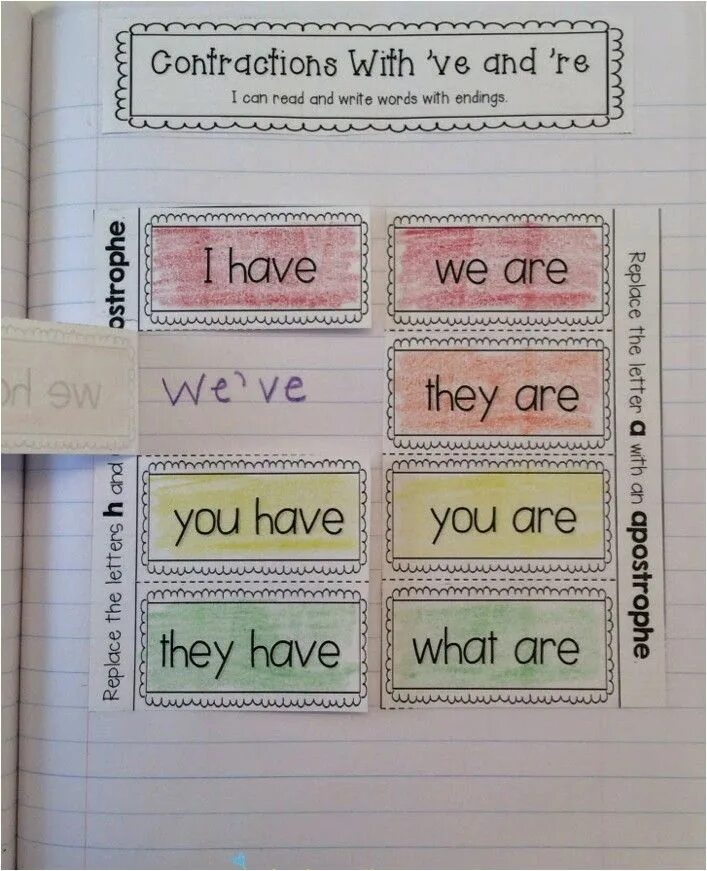 Contractions With 've and 're
I can read and write words with endings.
I have
we are
we ho
we've
they are
you have
you are
they have
what are
Replace the letters h and
ostrophe.
Replace the letter a with an apostrophe